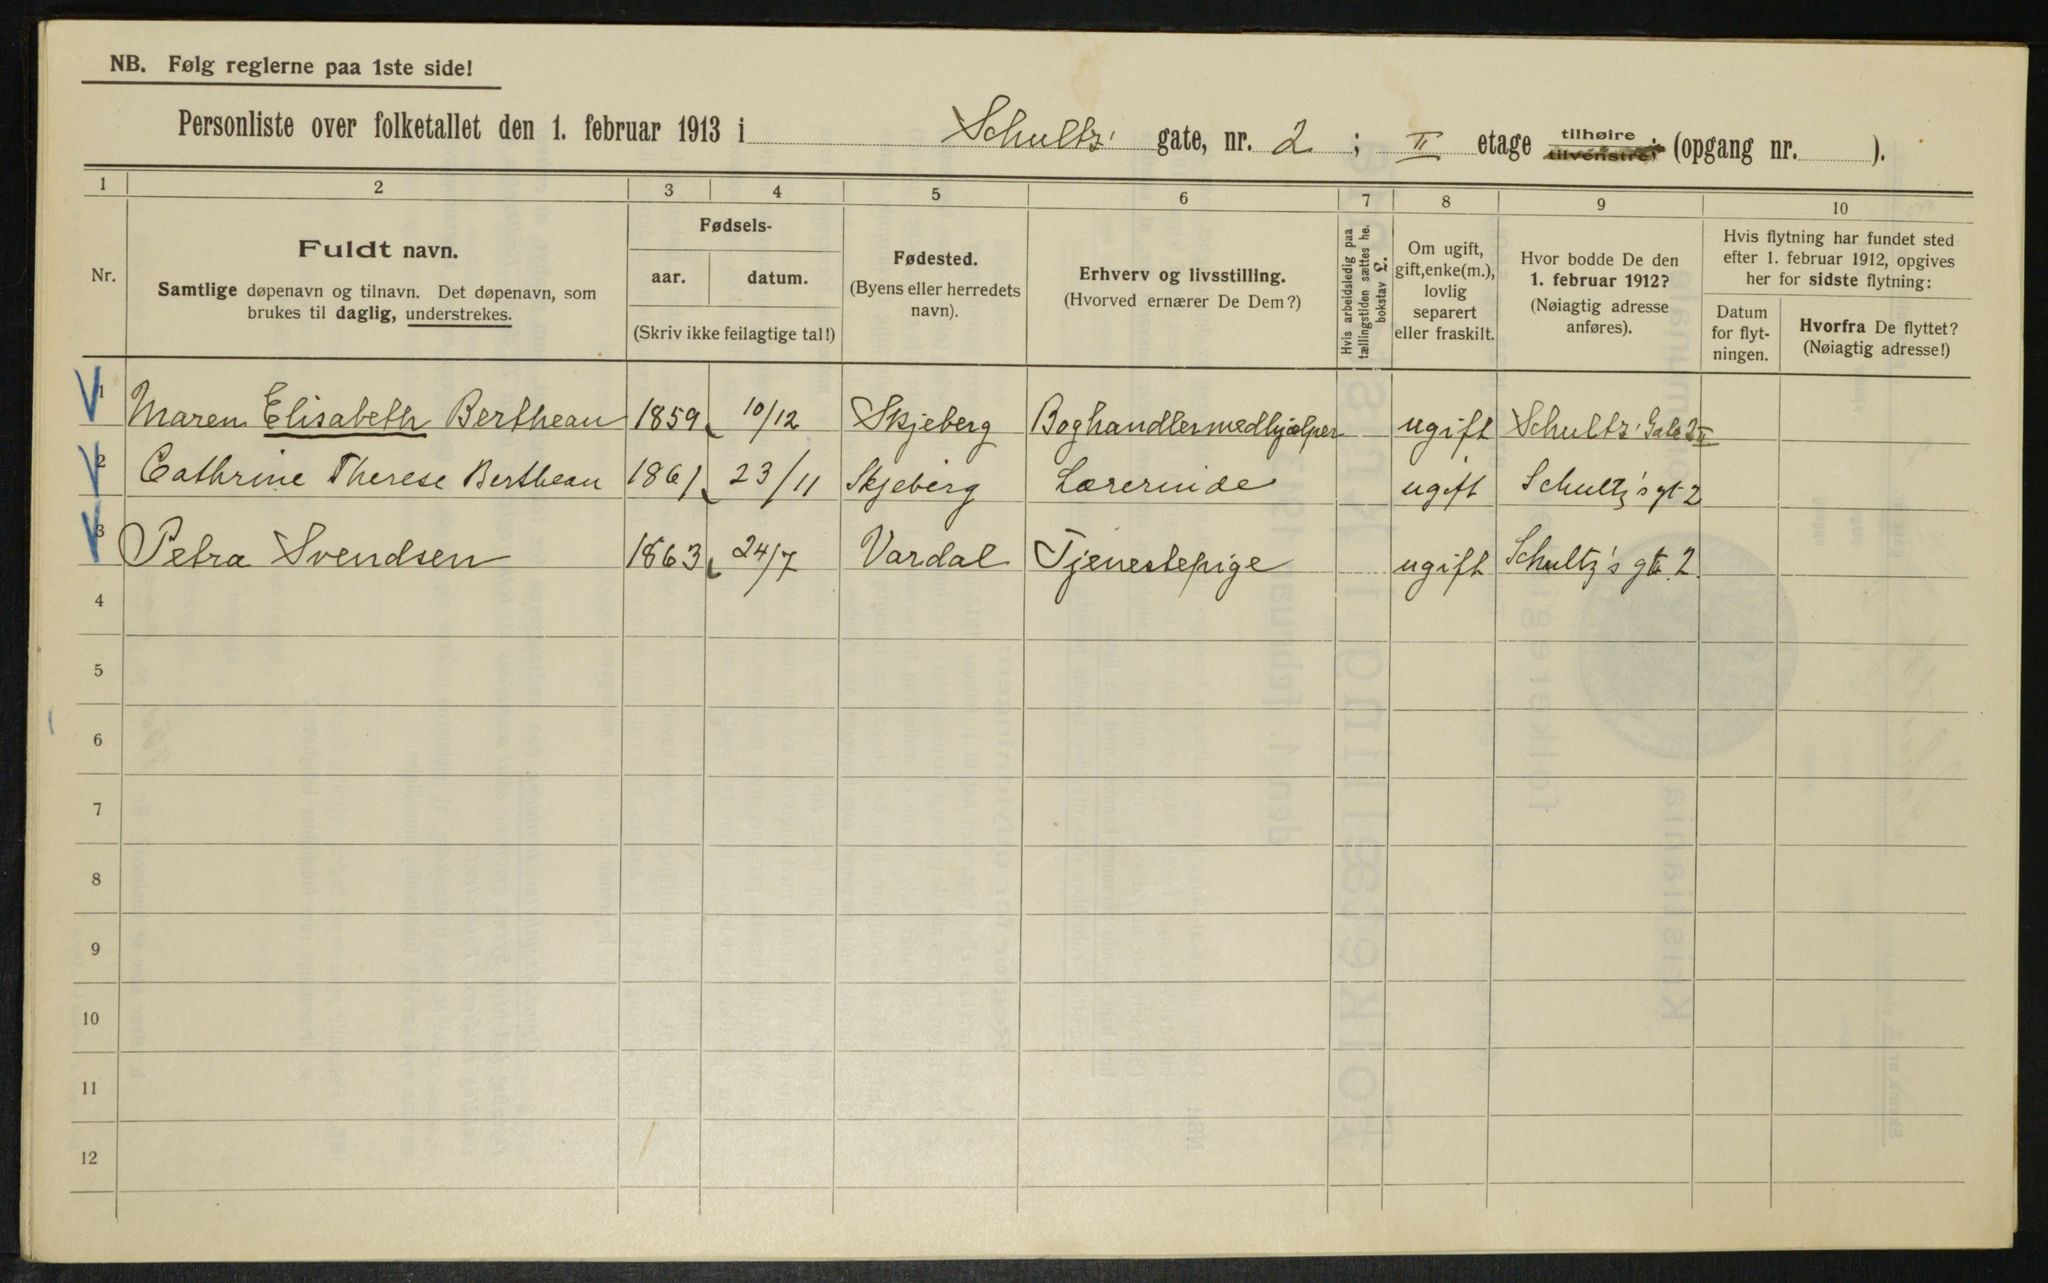 NB. Følg reglerne paa 1ste side!
Personliste over folketallet den 1. februar 1913 i Schultz' gate, nr. 2 ; II etage tilhøire tilvenstre; (opgang nr. ).
1 2 3 4 5 6 7 8 9 10
Nr.
Fuldt navn.
Samtlige døpenavn og tilnavn. Det døpenavn, som
brukes til daglig, understrekes.
Fødsels-
aar. datum.
(Skriv ikke feilagtige tal!)
Fødested.
(Byens eller herredets
navn).
Erhverv og livsstilling.
(Hvorved ernærer De Dem?)
Hvis arbeidsledig paa
tællingstiden sættes he.
bokstav L.
Om ugift,
gift, enke(m.),
lovlig
separert
eller fraskilt.
Hvor bodde De den
1. februar 1912?
(Nøiagtig adresse
anføres).
Hvis flytning har fundet sted
efter 1. februar 1912, opgives
her for sidste flytning:
Datum
for flyt-
ningen.
Hvorfra De flyttet?
(Nøiagtig adresse!)
1 Maren Elisabeth Bertheau 1859 10/12 Skjeberg Boghandlermedhjælper ugift Schultz' Gate 2 II
2 Cathrine Therese Bertheau 1861 23/11 Skjeberg Lærerinde ugift Schultz's gt 2
3 Petra Svendsen 1863 24/7 Vardal Tjenestepige ugift Schultz's gt. 2.
4
5
6
7
8
9
10
11
12